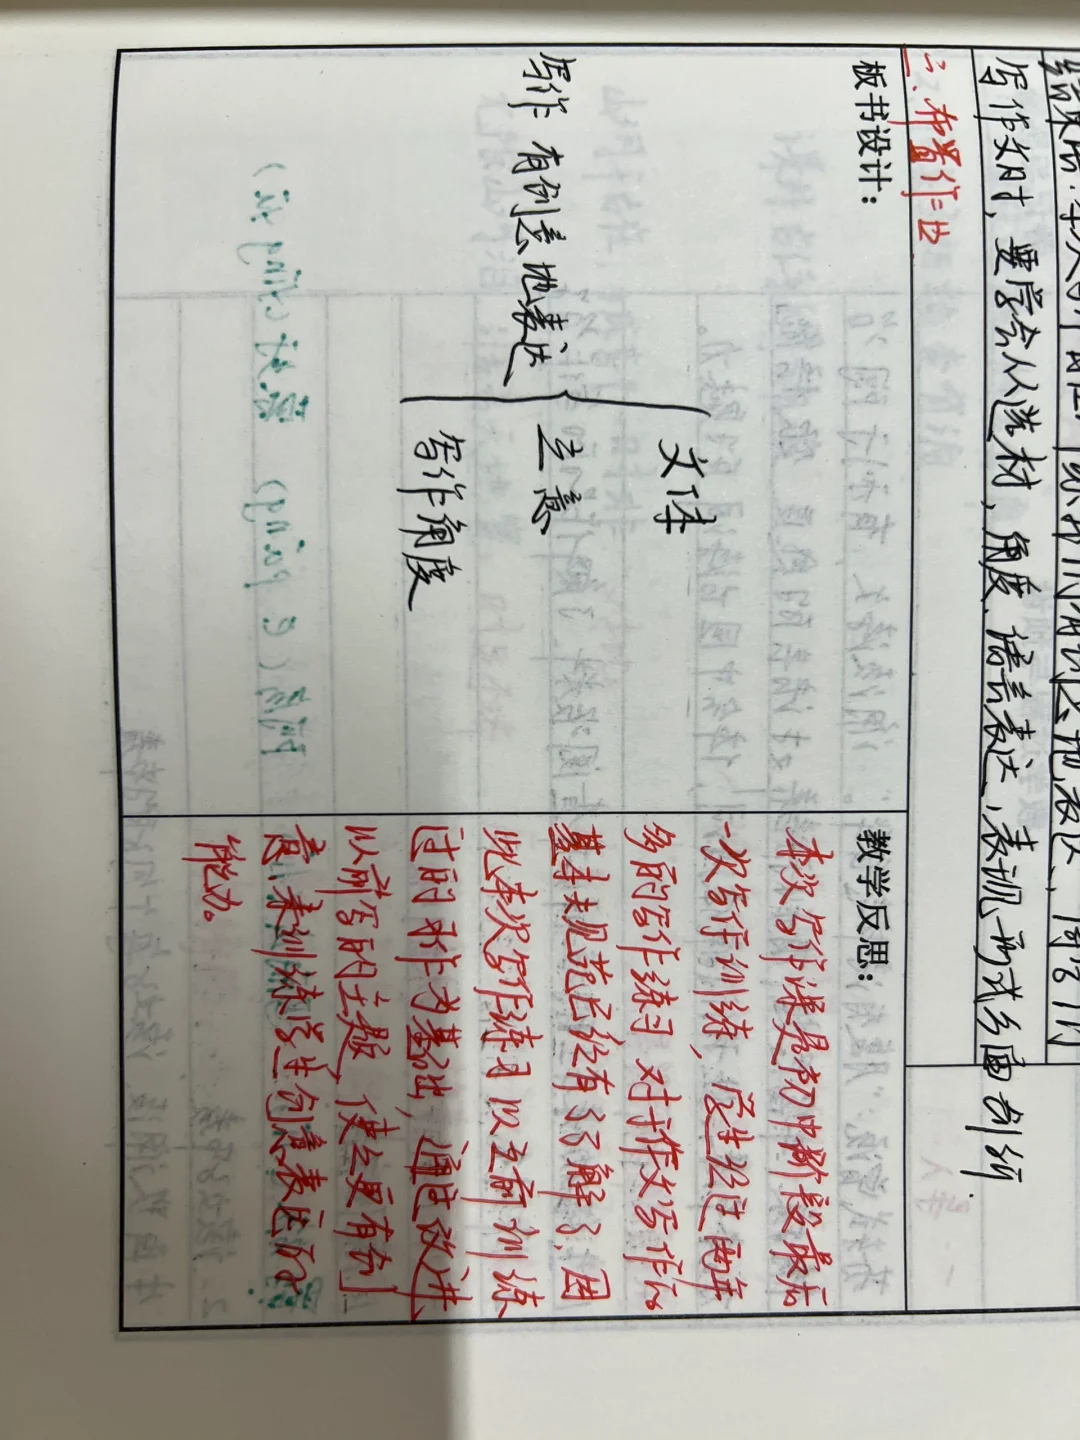 写作文时，要学会从选材，角度、语言表达、表现形式多面创新.
二、布置作业
板书设计：
写作 有创意地表达
文体
立意
写作角度
教学反思：
本次写作课是初中阶段最后
一次写作训练，学生经过两年
多的写作练习 对于作文写作的
基本规范已经有了了解了，因
此本次写作练习 以之前训练
过的 作为基础，通过改进
以前写的主题，使之更有创
意，来训练学生创意表达的
能力。